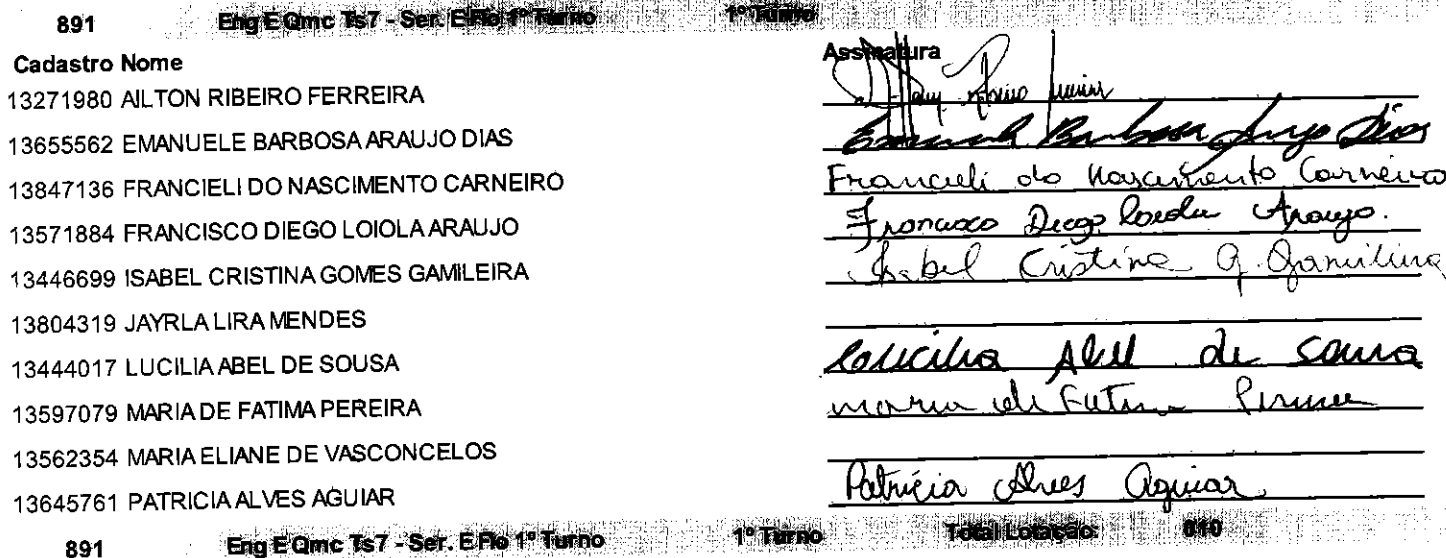 891 Eng E Qmc Ts7 - Ser. E Flo 1º Turno 1º Turno
Cadastro Nome Assinatura
13271980 AILTON RIBEIRO FERREIRA
13655562 EMANUELE BARBOSA ARAUJO DIAS Emanuele Barbosa Araujo Dias
13847136 FRANCIELI DO NASCIMENTO CARNEIRO Francieli do Nascimento Carneiro
13571884 FRANCISCO DIEGO LOIOLA ARAUJO Francisco Diego Loiola Araujo.
13446699 ISABEL CRISTINA GOMES GAMILEIRA Isabel Cristina G. Gamileira
13804319 JAYRLA LIRA MENDES
13444017 LUCILIA ABEL DE SOUSA Loucilia Abel de Sousa
13597079 MARIA DE FATIMA PEREIRA maria de Fatima Pereira
13562354 MARIA ELIANE DE VASCONCELOS
13645761 PATRICIA ALVES AGUIAR Patrícia Alves Aguiar
891 Eng E Qmc Ts7 - Ser. E Flo 1º Turno 1º Turno Total Lotação: 010